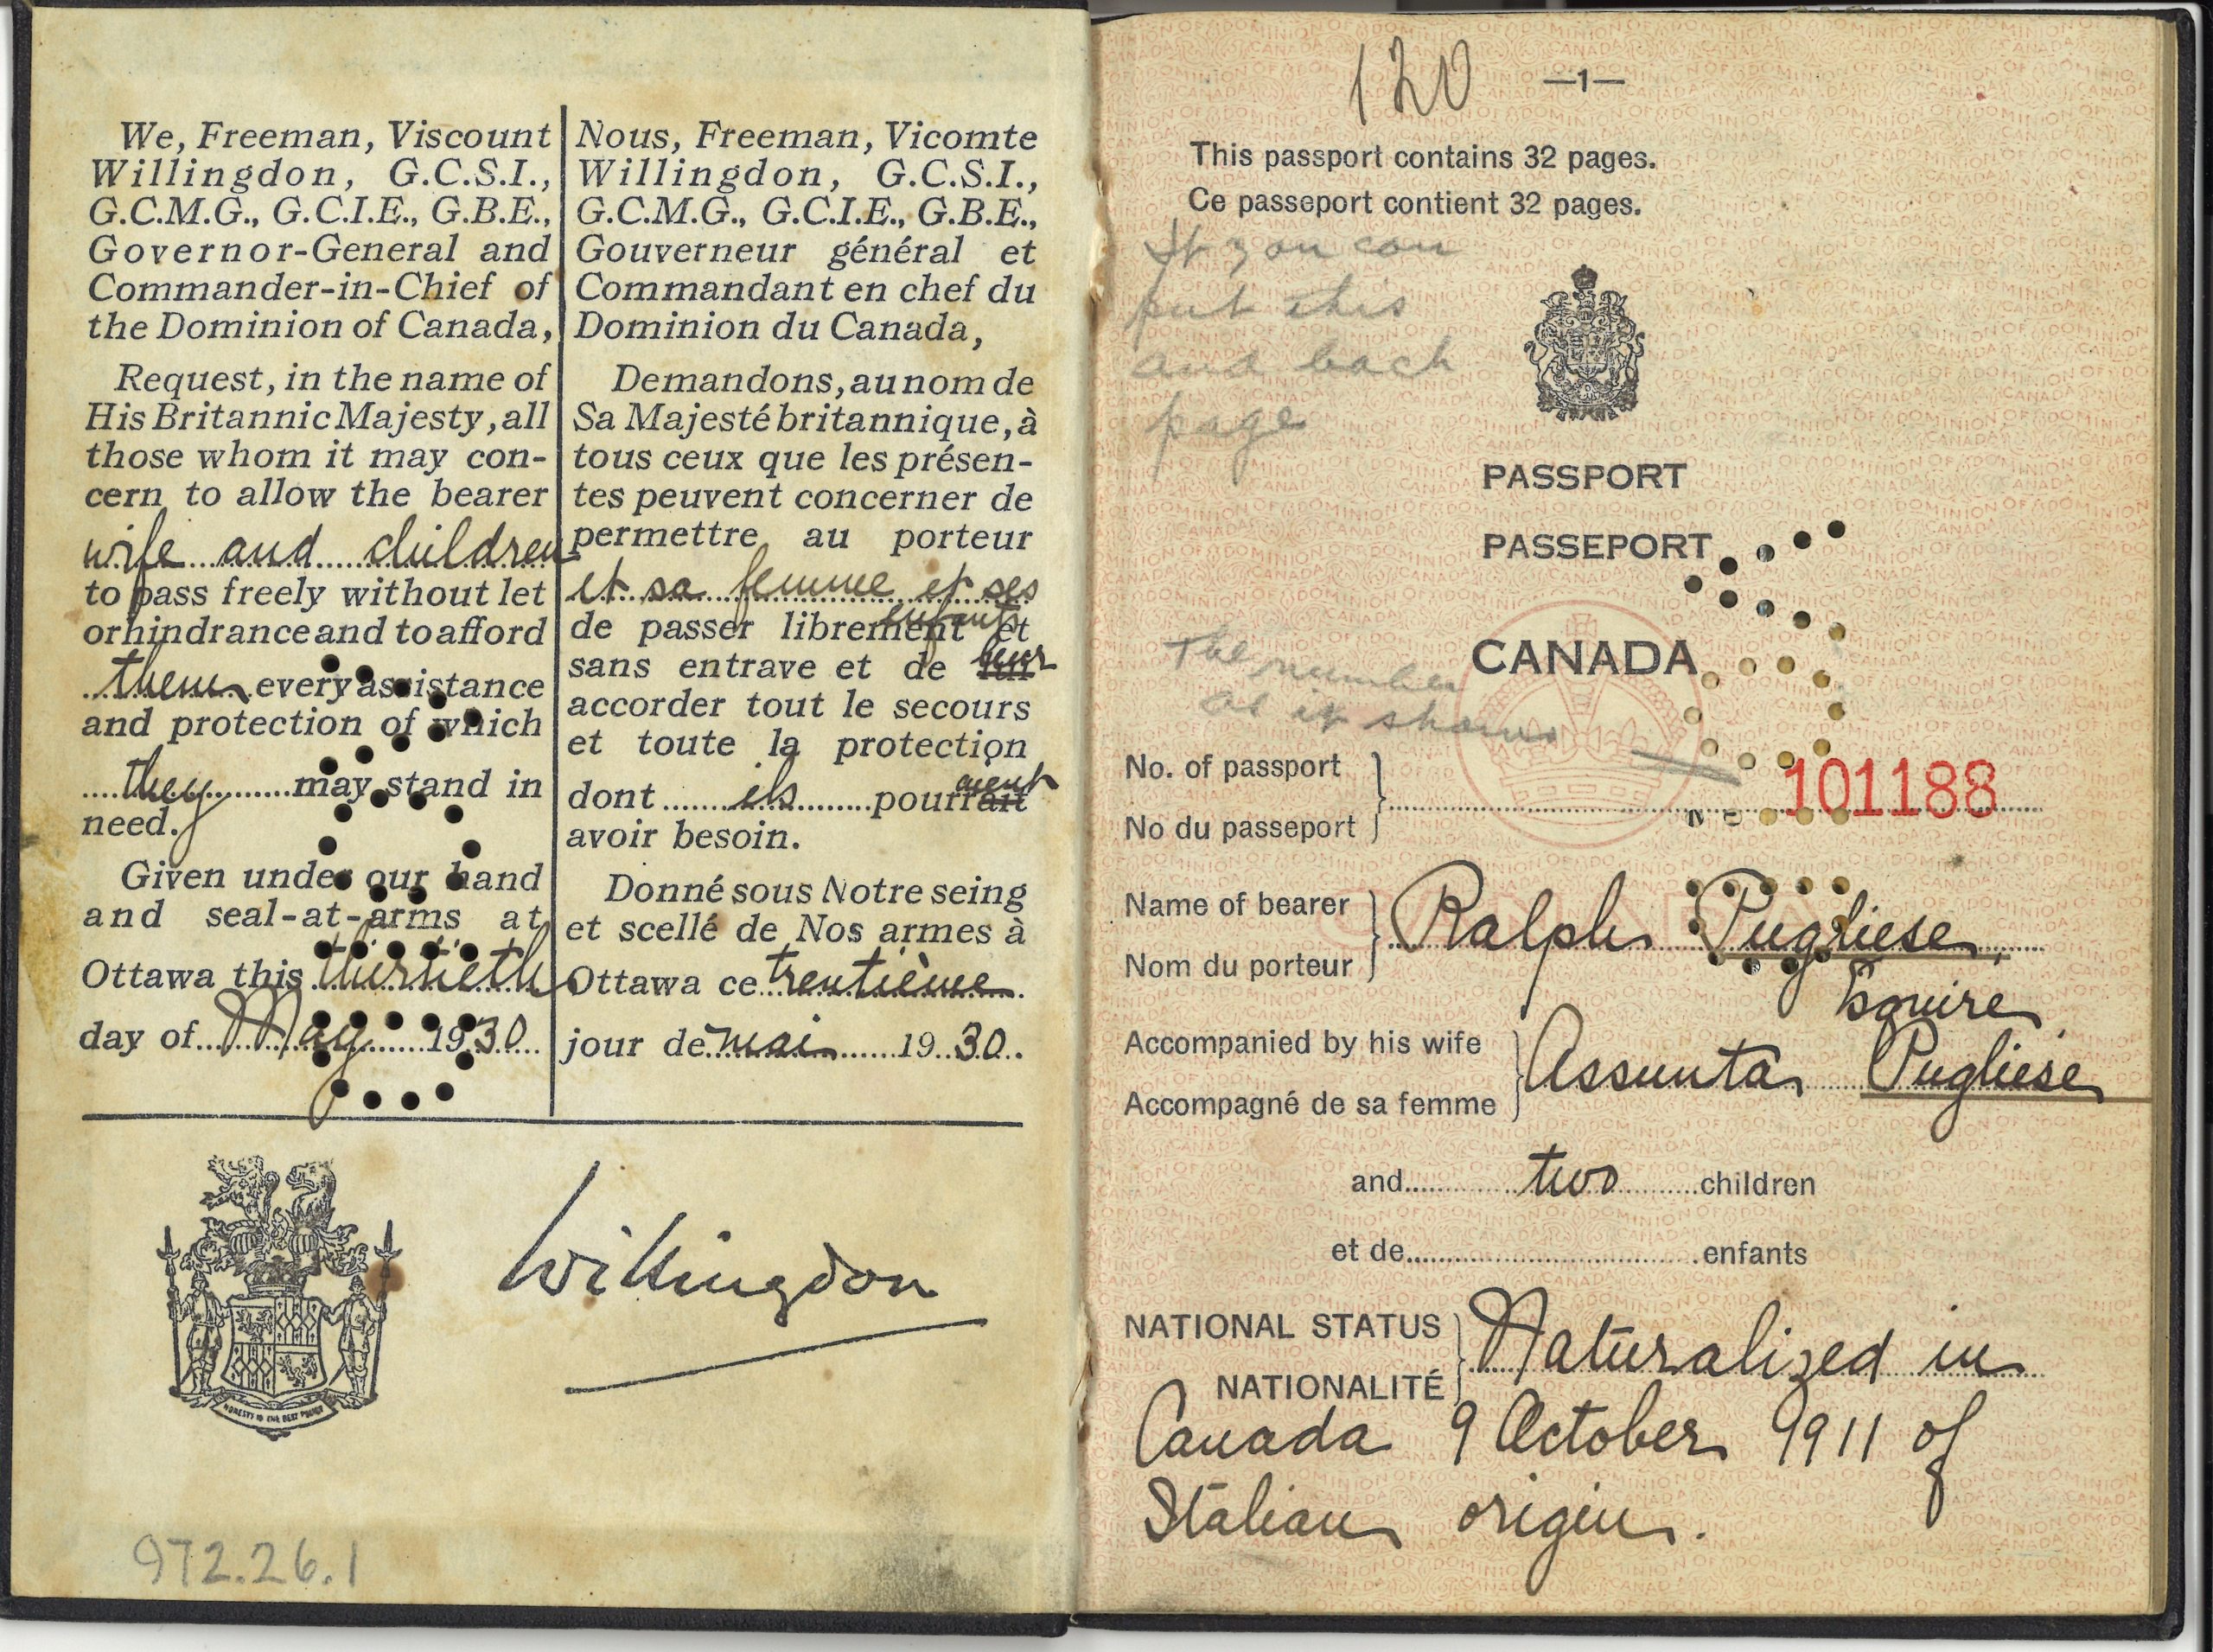 We, Freeman, Viscount
Willingdon, G.C.S.I.,
G.C.M.G., G.C.I.E., G.B.E.,
Governor-General and
Commander-in-Chief of
the Dominion of Canada,
Request, in the name of
His Britannic Majesty, all
those whom it may con-
cern to allow the bearer
wife and children
to pass freely without let
or hindrance and to afford
them every assistance
and protection of which
they may stand in
need.
Given under our hand
and seal-at-arms at
Ottawa this thirtieth
day of May 1930
Nous, Freeman, Vicomte
Willingdon, G.C.S.I.,
G.C.M.G., G.C.I.E., G.B.E.,
Gouverneur général et
Commandant en chef du
Dominion du Canada,
Demandons, au nom de
Sa Majesté britannique, à
tous ceux que les présen-
tes peuvent concerner de
permettre au porteur
et sa femme et ses
enfants
de passer librement et
sans entrave et de lui leur
accorder tout le secours
et toute la protection
dont ils pourrait aient
avoir besoin.
Donné sous Notre seing
et scellé de Nos armes à
Ottawa ce trentième
jour de mai 1930.
HONESTY IS THE BEST POLICY
Willingdon
972.26.1
120
—1—
This passport contains 32 pages.
Ce passeport contient 32 pages.
If you can
put this
and back
page
PASSPORT
PASSEPORT
CANADA
The number
as it shows
No. of passport
No du passeport
101188
Name of bearer
Nom du porteur
Ralph Pugliese,
Esquire
Accompanied by his wife
Accompagné de sa femme
Assunta Pugliese
and two children
et de enfants
NATIONAL STATUS
NATIONALITÉ
Naturalized in
Canada 9 October 1911 of
Italian origin.